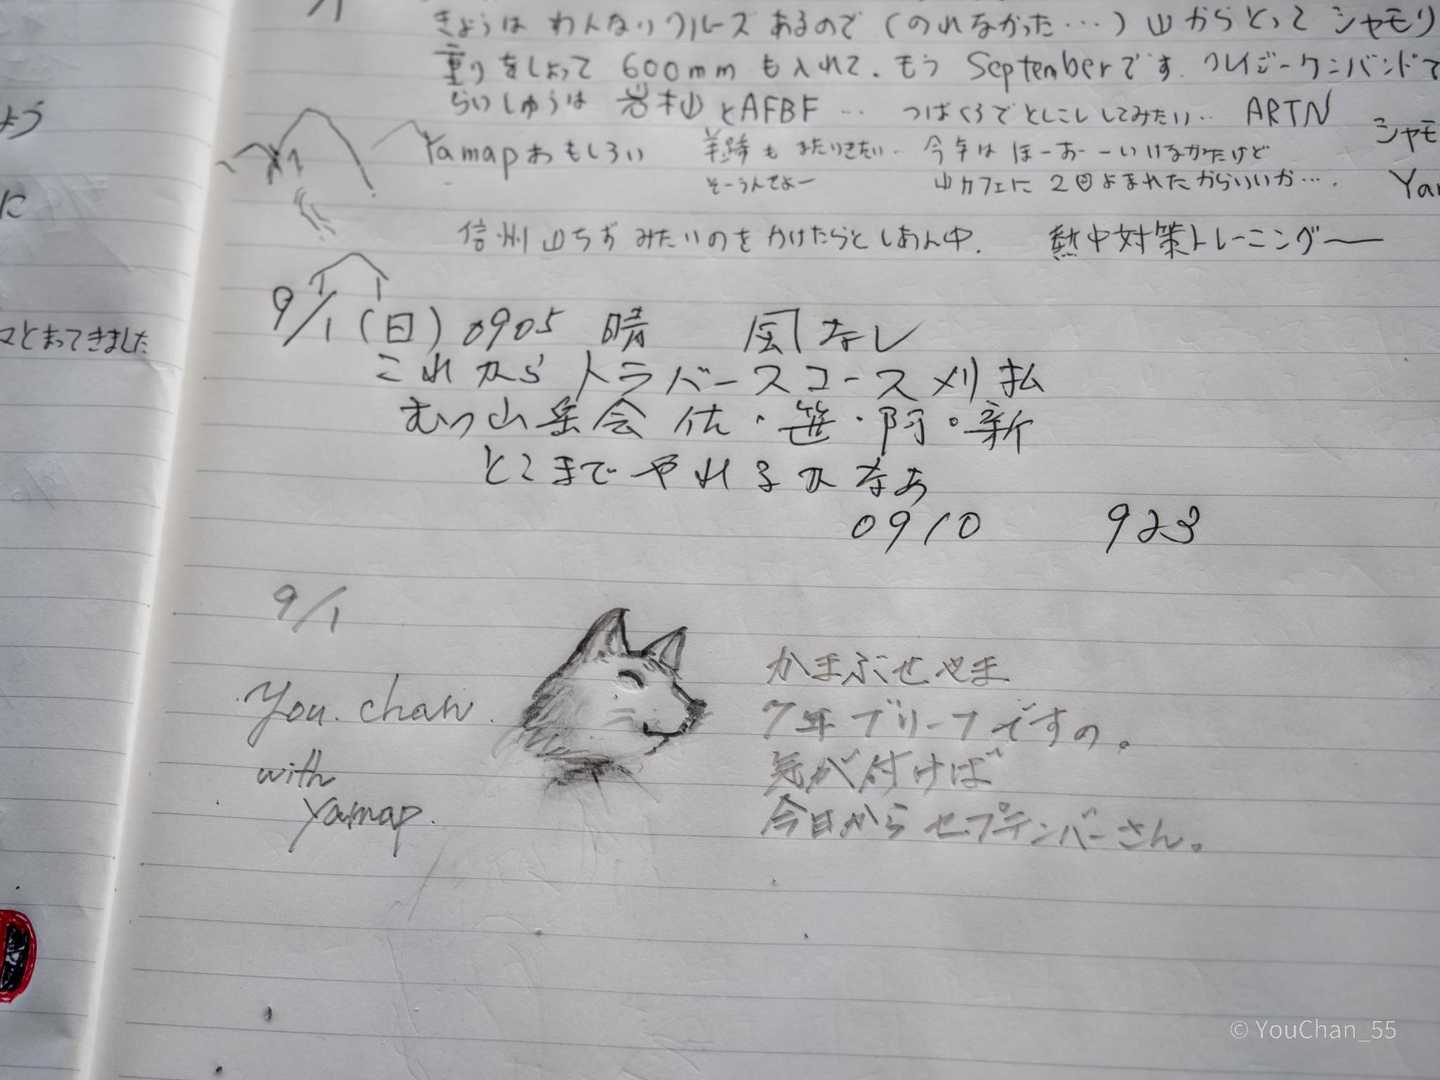 よう
に
とまってきました
きょうは わんないクルーズ あるので (のれなかった…) 山からとって シャモリ
重りをしょって 600mm も入れて. もう Septemberです. クレイジークンバンドで
らいしゅうは 岩木山 とAFBF … つばくろでとしこし してみたい.. ARTN
シャモ
Yamap おもしろい も またいきたい.. 今年は ほーおーーいけなかたけど
そーうんてよー 山カフェに 2回よまれたからいいか….
Yam
信州山ちず みたいのを かけたらと しあん中. 熱中対策トレーニングー
9/1(日) 0905 晴 風なし
これから トラバースコース刈払
むつ山岳会 佐・笹・阿・新
どこまで やれるかなあ
0910 923
9/1
You. chan.
with
Yamap.
かまぶせやま
7年ブリーフですの。
気が付けば
今日から セプテンバーさん。
© YouChan_55